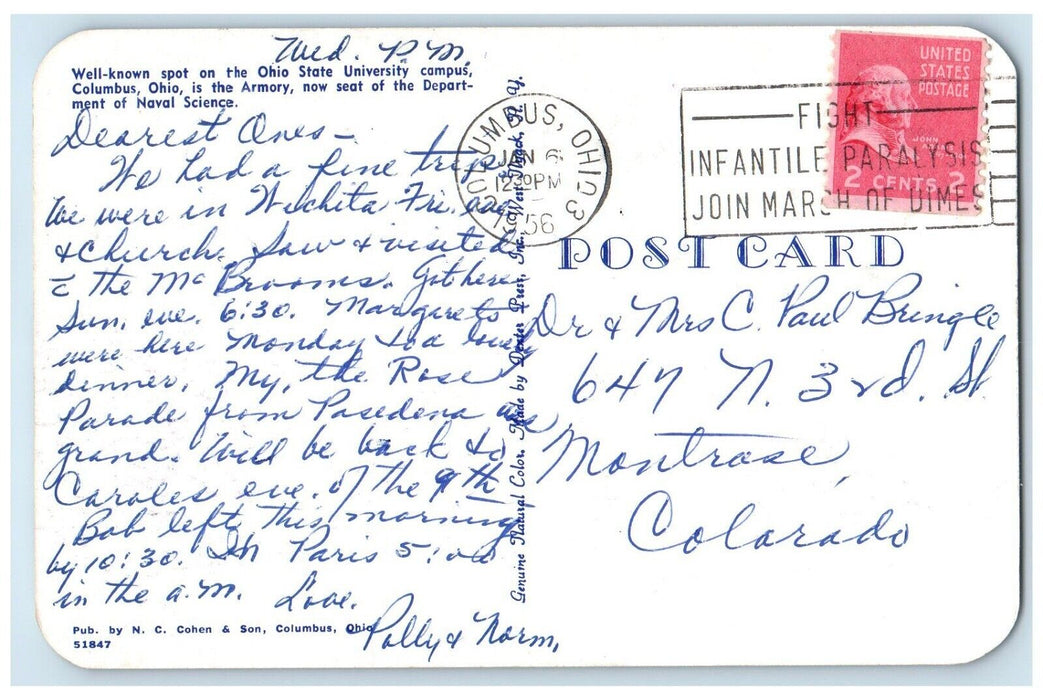 Wed. P.M.
Well-known spot on the Ohio State University campus,
Columbus, Ohio, is the Armory, now seat of the Depart-
ment of Naval Science.
Dearest Ones -
We had a fine trip
We were in Wichita Fri, eve
& church. Saw & visited
c̄ the McBrooms. Got here
Sun. eve. 6:30. Margarets
were here Monday to a
dinner. My, the Rose
Parade from Pasedena was
grand. Will be back to
Caroles eve. of the 9th
Bob left this morning
by 10:30. In Paris 5:00
in the a.m. Love.
Polly & Norm,
Pub. by N. C. Cohen & Son, Columbus, Ohio
51847
Genuine Natural Color. Made by Dexter Press, Inc., West Nyack, N. Y.
COLUMBUS, OHIO 3
JAN 6
12 30 PM
56
FIGHT
INFANTILE PARALYSIS
JOIN MARCH OF DIMES
UNITED
STATES
POSTAGE
JOHN
ADAMS
2 CENTS 2
POST CARD
Dr & Mrs C. Paul Bringle
647 N. 3rd. St
Montrose,
Colorado